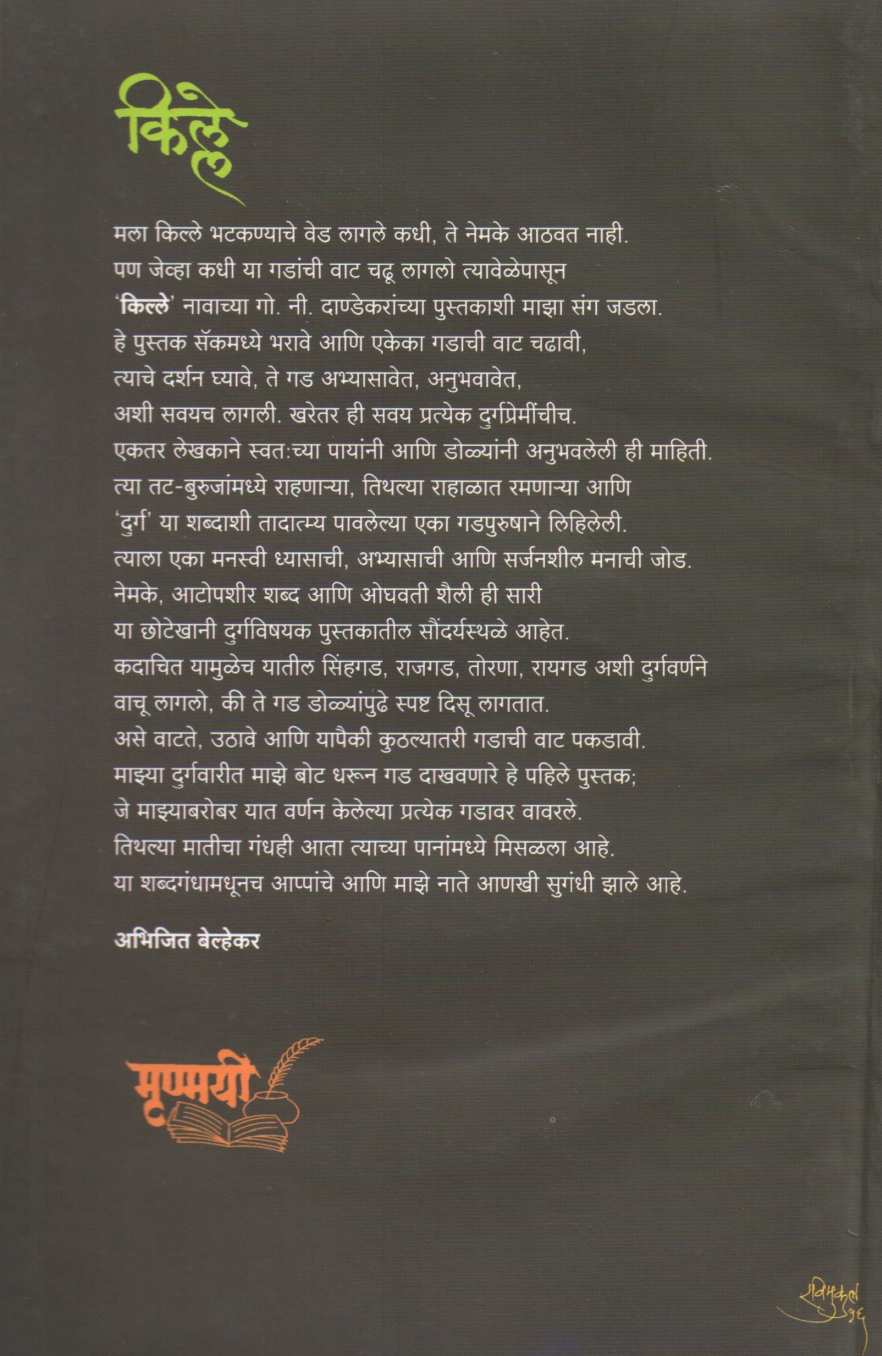 किल्ले
मला किल्ले भटकण्याचे वेड लागले कधी, ते नेमके आठवत नाही.
पण जेव्हा कधी या गडांची वाट चढू लागलो त्यावेळेपासून
'किल्ले' नावाच्या गो. नी. दाण्डेकरांच्या पुस्तकाशी माझा संग जडला.
हे पुस्तक सॅकमध्ये भरावे आणि एकेका गडाची वाट चढावी,
त्याचे दर्शन घ्यावे, ते गड अभ्यासावेत, अनुभवावेत,
अशी सवयच लागली. खरेतर ही सवय प्रत्येक दुर्गप्रेमींचीच.
एकतर लेखकाने स्वतःच्या पायांनी आणि डोळ्यांनी अनुभवलेली ही माहिती.
त्या तट-बुरुजांमध्ये राहणाऱ्या, तिथल्या राहाळात रमणाऱ्या आणि
'दुर्ग' या शब्दाशी तादात्म्य पावलेल्या एका गडपुरुषाने लिहिलेली.
त्याला एका मनस्वी ध्यासाची, अभ्यासाची आणि सर्जनशील मनाची जोड.
नेमके, आटोपशीर शब्द आणि ओघवती शैली ही सारी
या छोटेखानी दुर्गविषयक पुस्तकातील सौंदर्यस्थळे आहेत.
कदाचित यामुळेच यातील सिंहगड, राजगड, तोरणा, रायगड अशी दुर्गवर्णने
वाचू लागलो, की ते गड डोळ्यांपुढे स्पष्ट दिसू लागतात.
असे वाटते, उठावे आणि यापैकी कुठल्यातरी गडाची वाट पकडावी.
माझ्या दुर्गवारीत माझे बोट धरून गड दाखवणारे हे पहिले पुस्तक;
जे माझ्याबरोबर यात वर्णन केलेल्या प्रत्येक गडावर वावरले.
तिथल्या मातीचा गंधही आता त्याच्या पानांमध्ये मिसळला आहे.
या शब्दगंधामधूनच आप्पांचे आणि माझे नाते आणखी सुगंधी झाले आहे.
अभिजित बेल्हेकर
मृण्मयी
रविमुकुल
१६